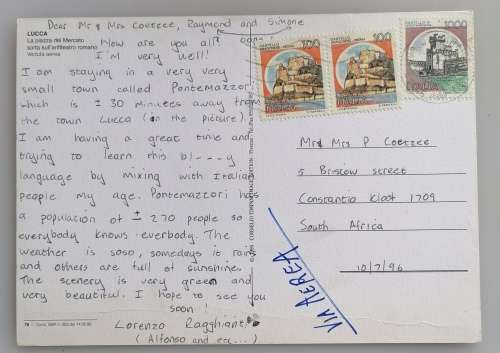 Dear Mr & Mrs Coetzee, Raymond and Simone
LUCCA
La piazza del Mercato
sorta sull'anfiteatro romano
Veduta aerea
How are you all?
I'm very well!
I am staying in a very very
small town called Pontemazzori
which is ± 30 minutes away from
the town Lucca (in the picture)
I am having a great time and
trying to learn this bl---y
language by mixing with Italian
people my age. Pontemazzori has
a population of ± 270 people so
everybody knows everbody. The
weather is soso, somedays it rains
and others are full of sunshine.
The scenery is very green and
very beautiful. I hope to see you
soon!
Lorenzo Ragghianti
(Alfonso and co...)
100
100
1000
Mr & Mrs P Coetzee
5 Bristow street
Constantia Kloof 1709
South Africa
10/7/96
VIA AEREA